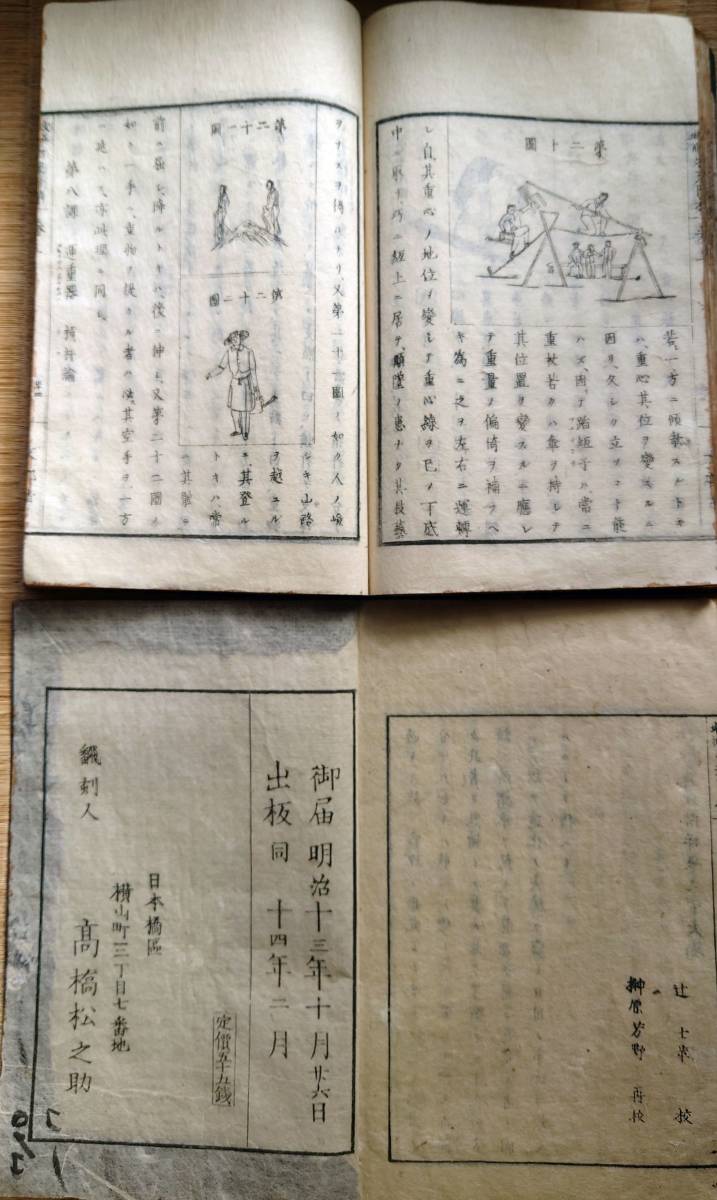 第二十圖
若シ一方ニ傾欹スルトキ
ハ、重心其位ヲ變スルニ
因リ、久シク立ヿ能
ハズ、因テ踏縆子ハ、常ニ
重杖若クハ傘ヲ持シテ
其位置ヲ變スルニ應レ
テ重量ノ偏倚ヲ補フヘ
キ為ニ之ヲ左右ニ運轉
シ、自其重心ノ地位ヲ變シテ重心線ヲ已ノ丁底
中ニ
縆上ニ居テ、顛墜ノ患ナク其技藝
ヲナスヲ得ルナリ、又第二十一圖ノ如ク人ノ嶮
第二十一圖
第二十二圖
ルキ山路
ヲ越ユル
ニ、其登ル
トキハ常
ニ其體ニ
前ニ屈シ、降ルトキハ、後ニ伸シ、又第二十二圖ノ
如ク一手ニ、重物ヲ提クル者ノ、其空手ヲ一方
ニ延ハス、亦此理ニ同シ、
第八課 運重器 槓杆論
辻士革 校
榊原芳野 再校
御届明治十三年十月廿六日
出板同 十四年二月
定價五十五錢
日本橋區
横山町三丁目七番地
飜刻人 高橋松之助